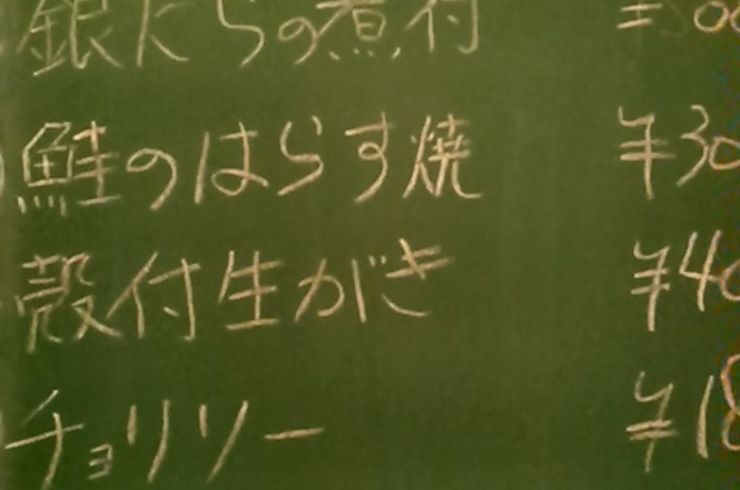 銀だらの煮付
鮭のはらす焼 ¥30
殻付生がき ¥40
チョリソー ¥18